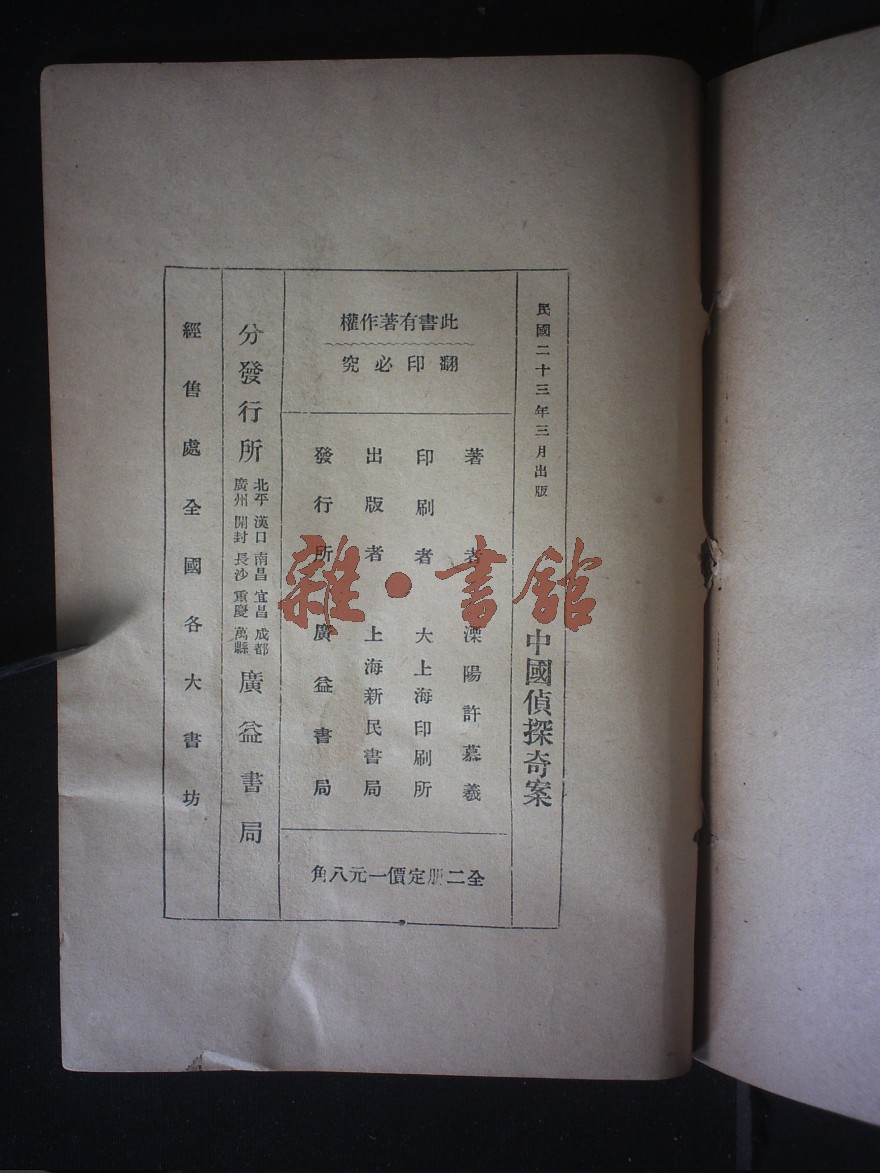 民國二十三年三月出版
中國偵探奇案
此書有著作權
翻印必究
著者 溧陽許慕羲
印刷者 大上海印刷所
出版者 上海新民書局
發行所 廣益書局
全二册定價一元八角
分發行所 北平 漢口 南昌 宜昌 成都 廣州 開封 長沙 重慶 萬縣 廣益書局
經售處全國各大書坊
雜·書館